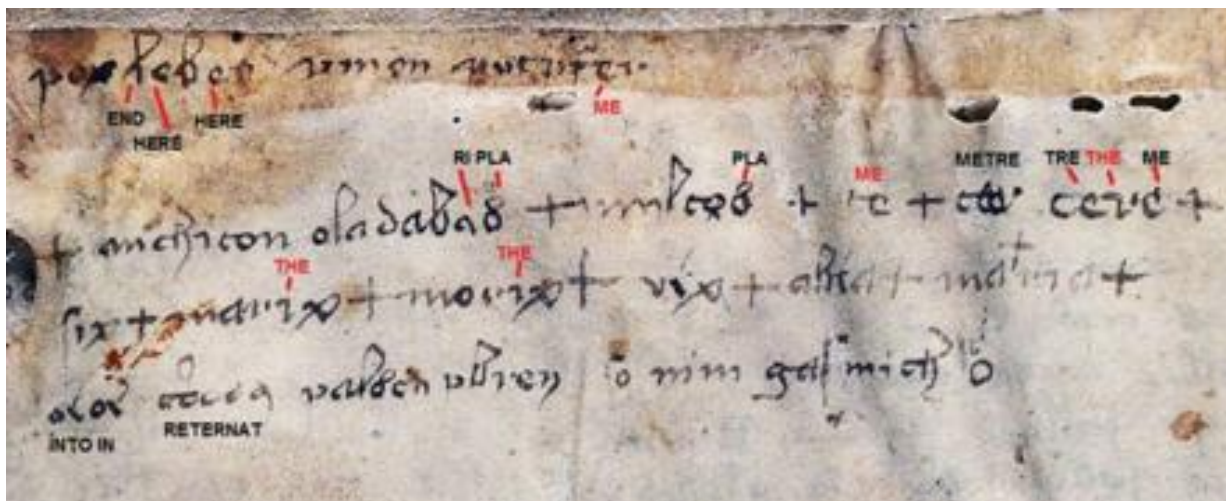 pox leber umon putrifer
END HERE HERE ME
RI PLA PLA ME METRE TRE THE ME
+ anchiton oladabas + multos + te + cere +
THE THE
six + marix + morix + vix + abia + ma+ria +
valsch ubren so nim gas mich o
INTO IN RETERNAT